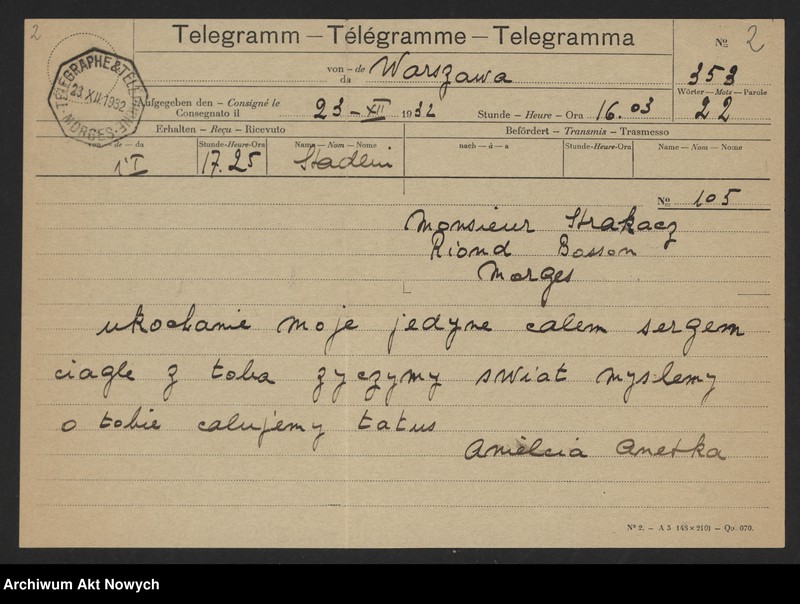 2
Telegramm — Télégramme — Telegramma
Nº 2
von - de
da Warszawa
353
Wörter — Mots — Parole
22
TELEGRAPHE & TELEPHONE
23.XII.1932
MORGES
Aufgegeben den - Consigné le
Consegnato il 23 - XII 1932
Stunde - Heure - Ora 16.03
Erhalten - Reçu - Ricevuto
Befördert - Transmis - Trasmesso
von — de — da
Stunde-Heure-Ora
Name — Nom — Nome
nach — à — a
Stunde-Heure-Ora
Name — Nom — Nome
17.25
Nº 105
Monsieur Strakacz
Riond Bosson
Morges
ukochanie moje jedyne calem sergem
ciagle z toba zyczymy swiat myslemy
o tobie calujemy tatus
Anielcia Anetka
Nº 2. — A 5 (148×210) — Qp. 070.
Archiwum Akt Nowych